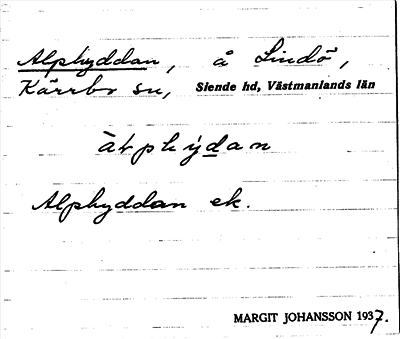 Alphyddan, å Lindö,
Kärrbo sn, Siende hd, Västmanlands län
àlphy̆dan
Alphyddan ek.
MARGIT JOHANSSON 1937.